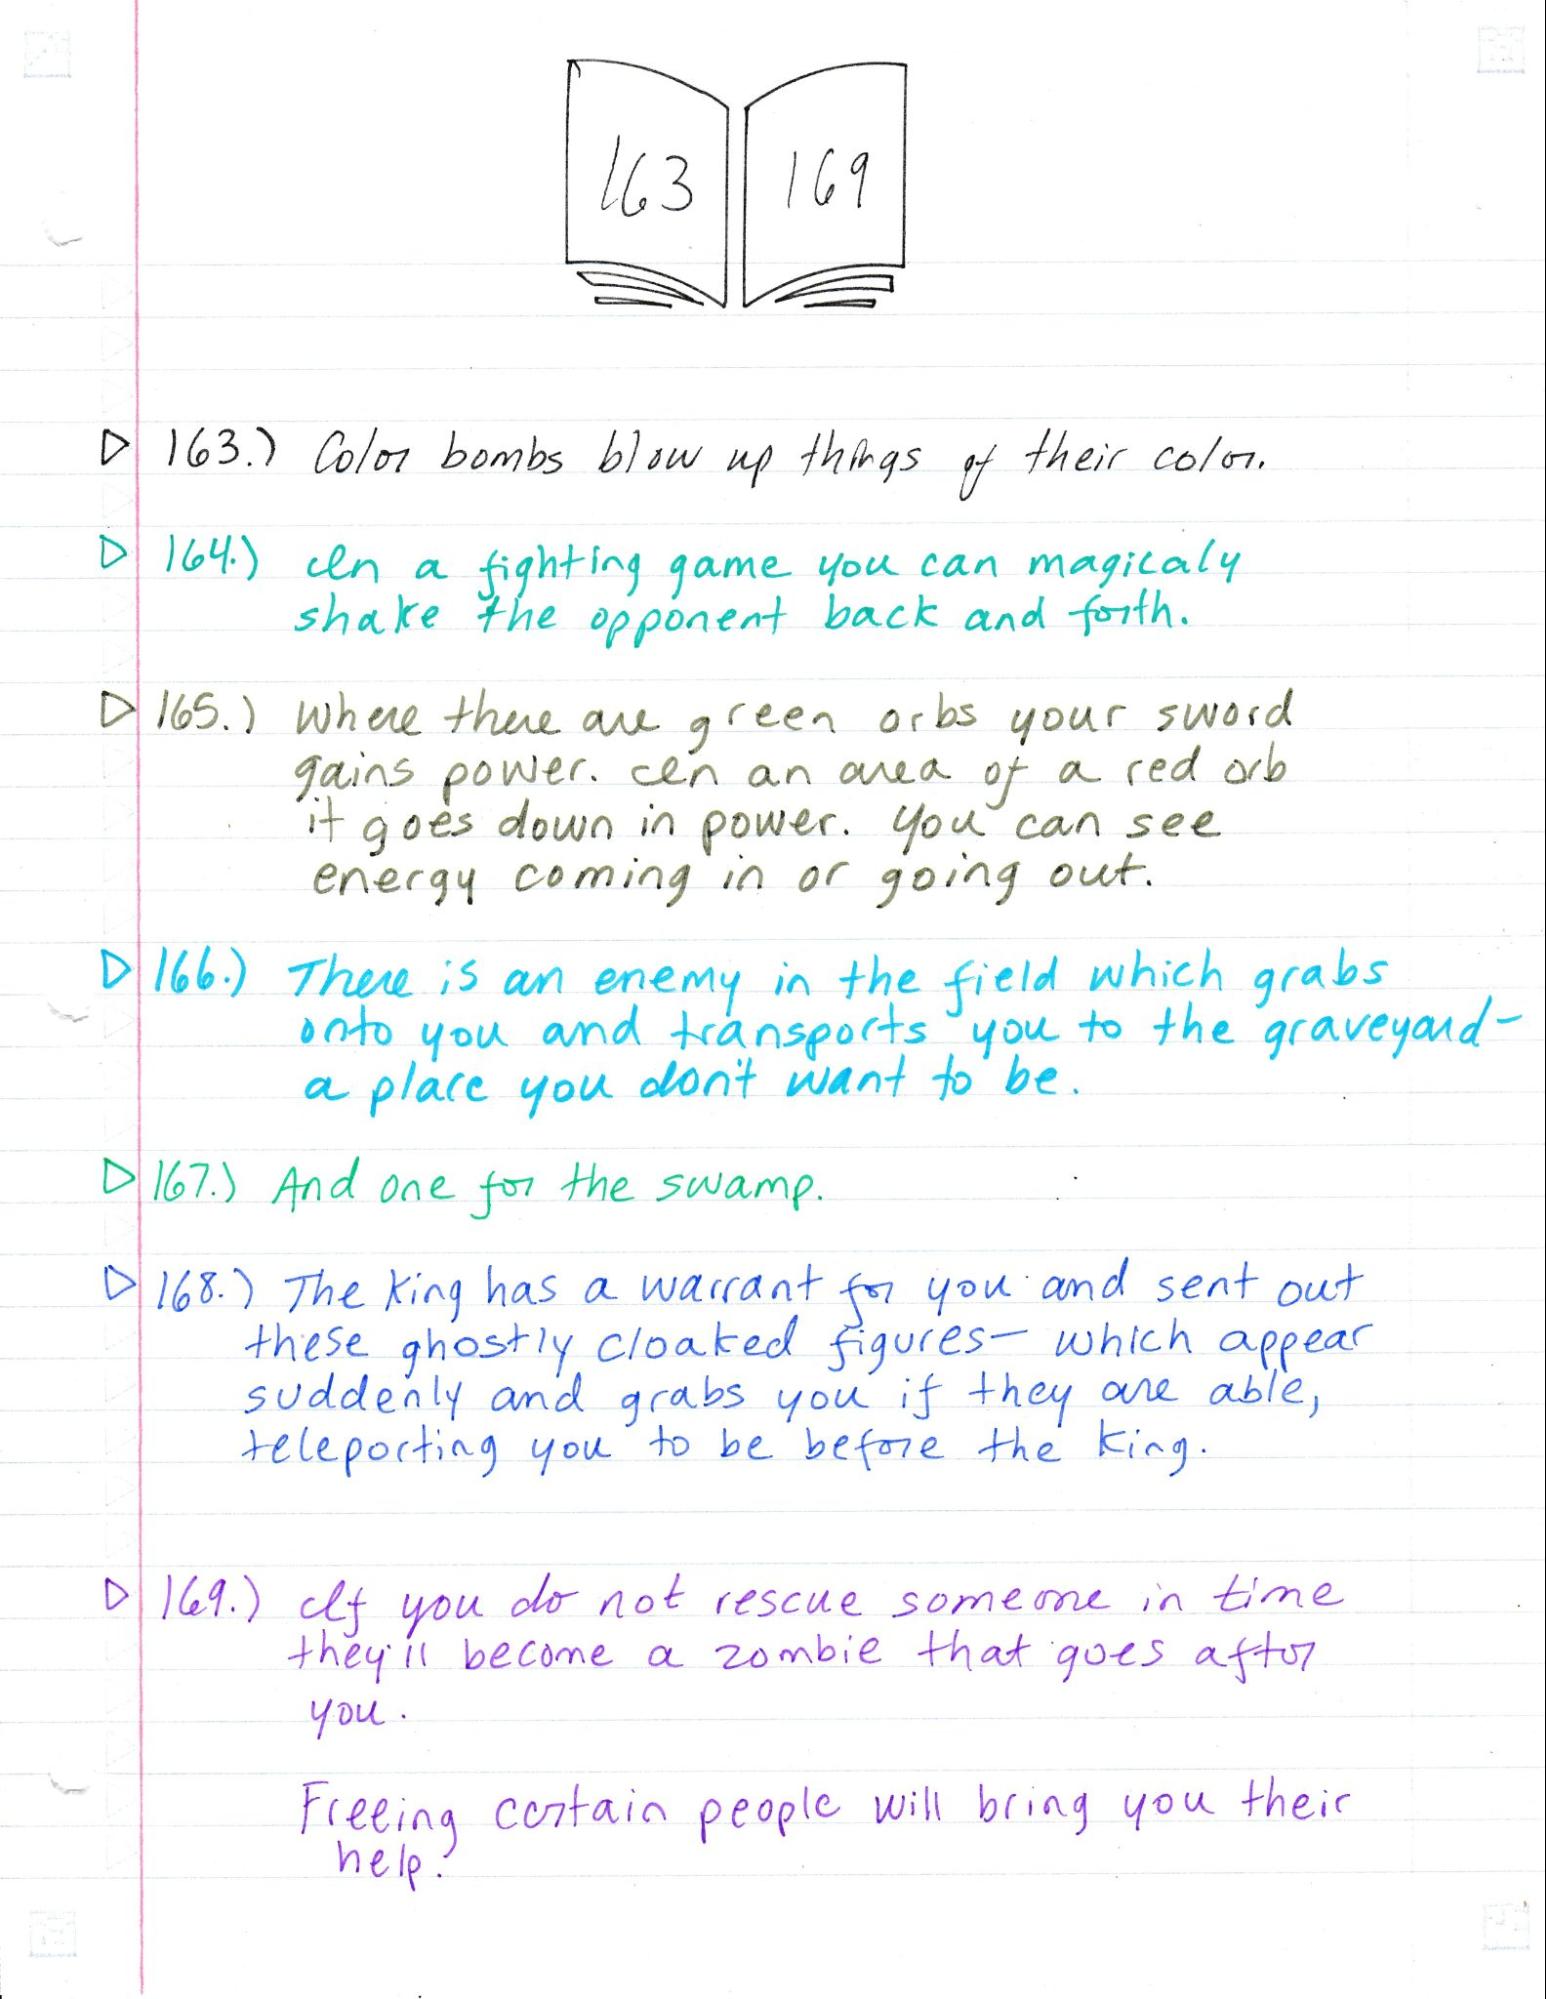 163 169
163.) Color bombs blow up things of their color.
164.) In a fighting game you can magicaly
shake the opponent back and forth.
165.) Where there are green orbs your sword
gains power. In an area of a red orb
it goes down in power. You can see
energy coming in or going out.
166.) There is an enemy in the field which grabs
onto you and transports you to the graveyard-
a place you don't want to be.
167.) And one for the swamp.
168.) The King has a warrant for you and sent out
these ghostly cloaked figures- which appear
suddenly and grabs you if they are able,
teleporting you to be before the King.
169.) If you do not rescue someone in time
they'll become a zombie that goes after
you.
Freeing certain people will bring you their
help.